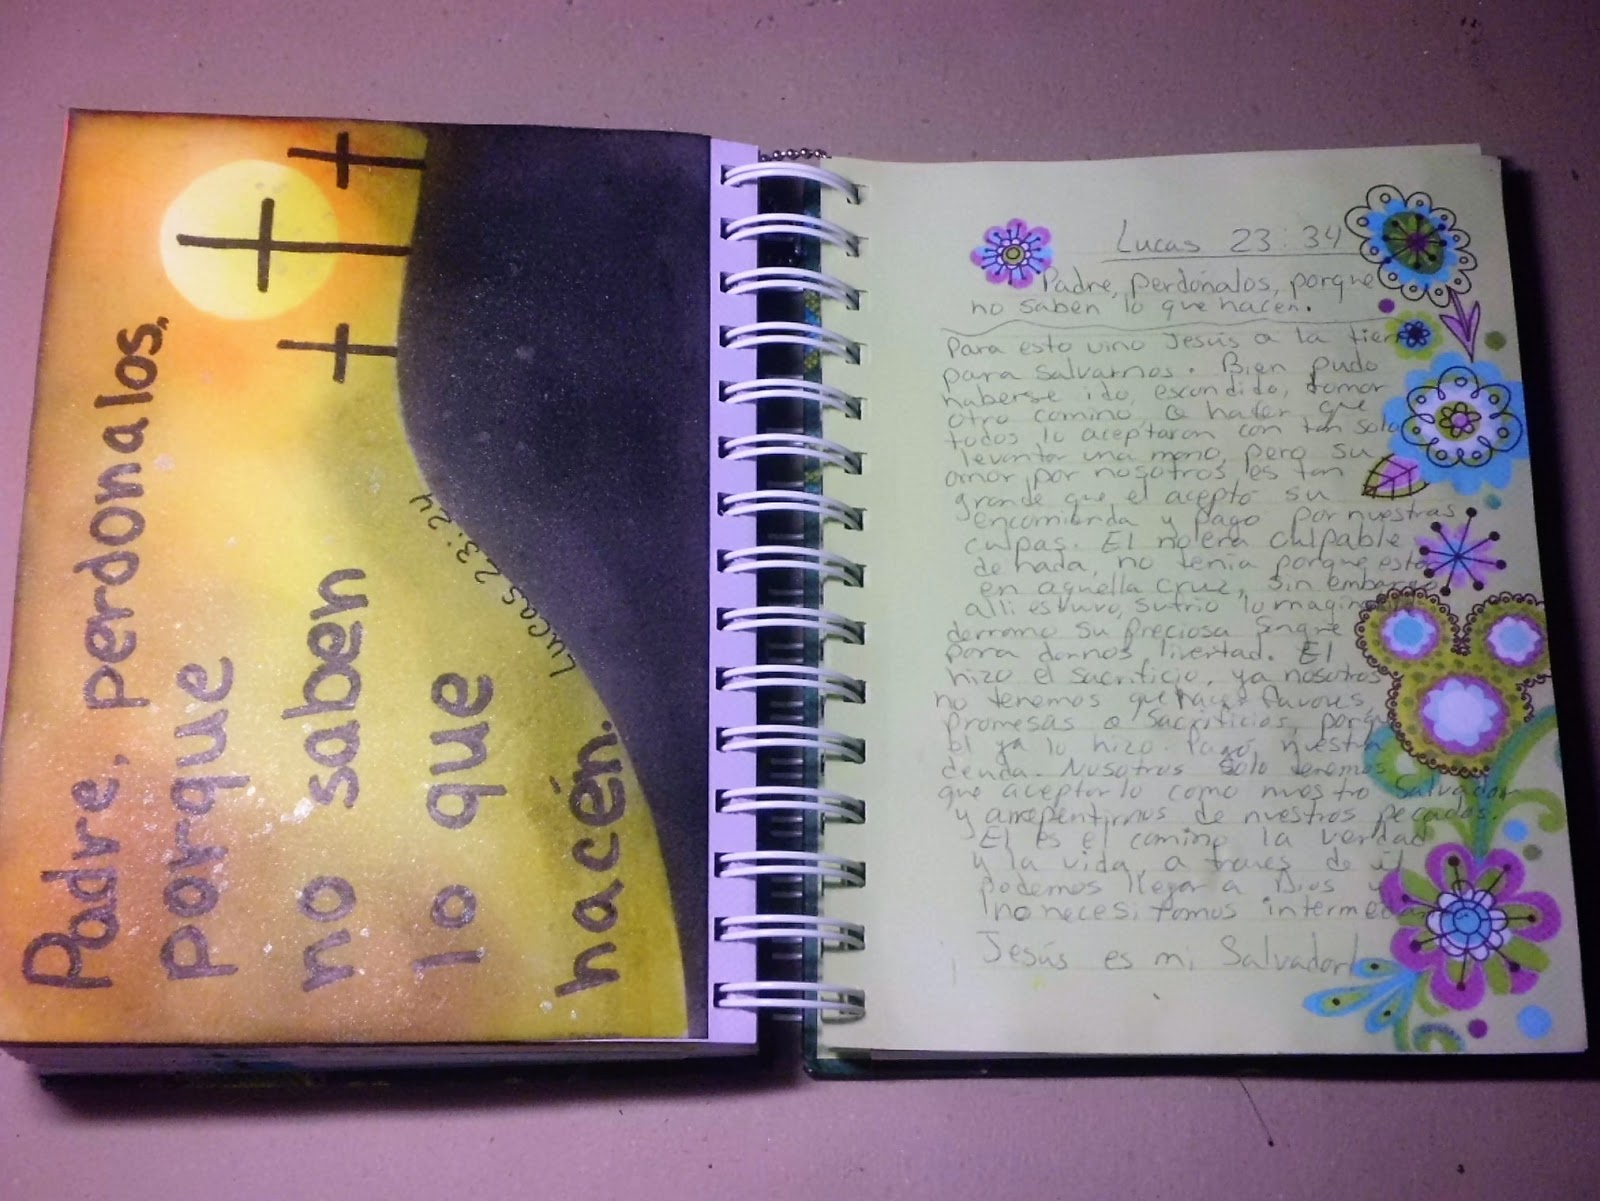 Padre, perdonalos,
porque
no saben
lo que
hacén.
Lucas 23:24
Lucas 23:34
Padre, perdónalos, porque
no saben lo que hacen.
Para esto vino Jesús a la tierr
para salvarnos. Bien pudo
haberse ido, escondido, tomar
otro camino, o hacer que
todos lo aceptaran con tan solo
levantar una mano, pero su
amor por nosotros es tan
grande que el acepto su
encomienda y pago por nuestras
culpas. El no era culpable
de nada, no tenia porque estar
en aquella cruz, sin embargo
alli estuvo, sufrio lo
derramo su preciosa sangre
para darnos libertad. El
hizo el sacrificio, ya nosotros
no tenemos que hacer favores,
promesas o sacrificios, porque
el ya lo hizo. Pagó nuestra
deuda. Nosotros solo tenemos
que aceptarlo como nuestro Salvador
y arrepentirnos de nuestros pecados.
El es el camino la verdad
y la vida, a traves de el
podemos llegar a Dios y
no necesitamos
Jesús es mi Salvador!